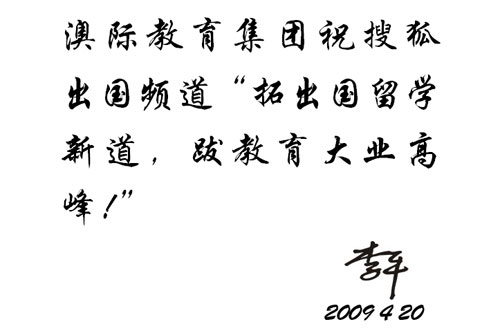 澳际教育集团祝搜狐
出国频道“拓出国留学
新道，跋教育大业高
峰!”
李平
2009 4 20